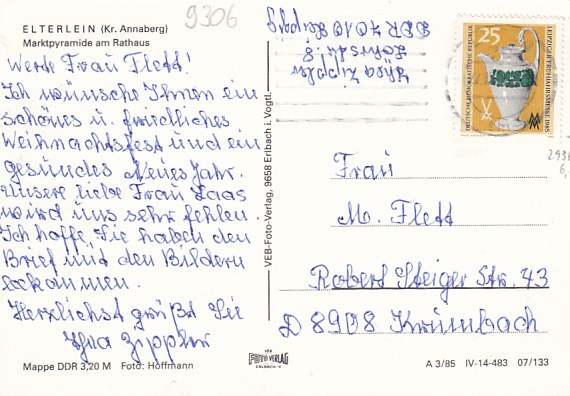 ELTERLEIN (Kr. Annaberg)
Marktpyramide am Rathaus
9306
Werte Frau Flett!
Ich wünsche Ihnen ein
schönes u. friedliches
Weihnachtsfest und ein
gesundes Neues Jahr.
Unsere liebe Frau Haas
wird uns sehr fehlen.
Ich hoffe, Sie haben den
Brief mit den Bildern
bekommen.
Herzlichst grüßt Sie
Ihre Zippler
Mappe DDR 3,20 M Foto: Hoffmann
VEB-Foto-Verlag, 9658 Erlbach i. Vogtl.
Zippler
DDR 7010 Leipzig
25
DEUTSCHE DEMOKRATISCHE REPUBLIK
LEIPZIGER FRÜHJAHRSMESSE 1985
Frau
M. Flett
Robert Steiger Str. 43
D 8908 Krumbach
VEB
FOTO VERLAG
ERLBACH-V
A 3/85 IV-14-483 07/133